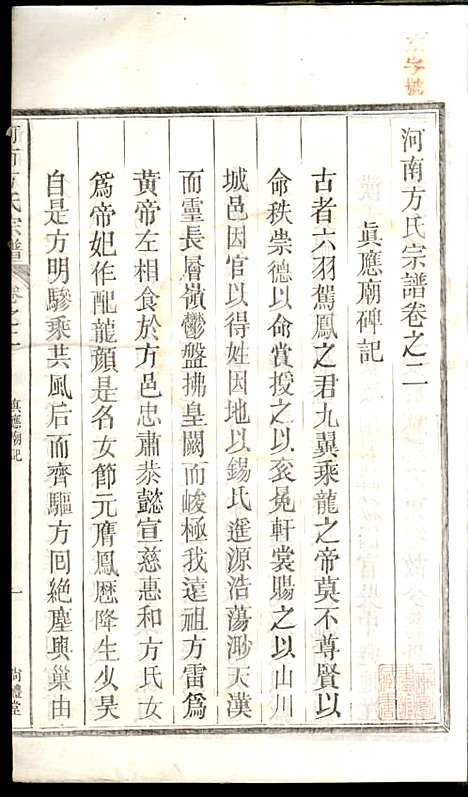 河南方氏宗譜卷之二
眞應廟碑記
古者六羽駕鳳之君九翼乘龍之帝莫不尊賢以
命秩崇德以命賞授之以衮冕軒裳賜之以山川
城邑因官以得姓因地以錫氏進源浩蕩渺天漢
而靈長層嶺鬱盤拂皇闕而峻極我遠祖方雷爲
黃帝左相食於方邑忠肅恭懿宣慈惠和方氏女
爲帝妃作配龍顏是名女節元膺鳳曆降生少昊
自是方明驂乘共風后而齊驅方回絶塵與巢由
河南方氏宗譜
卷之二
眞應廟記
一
尚禮堂
字號